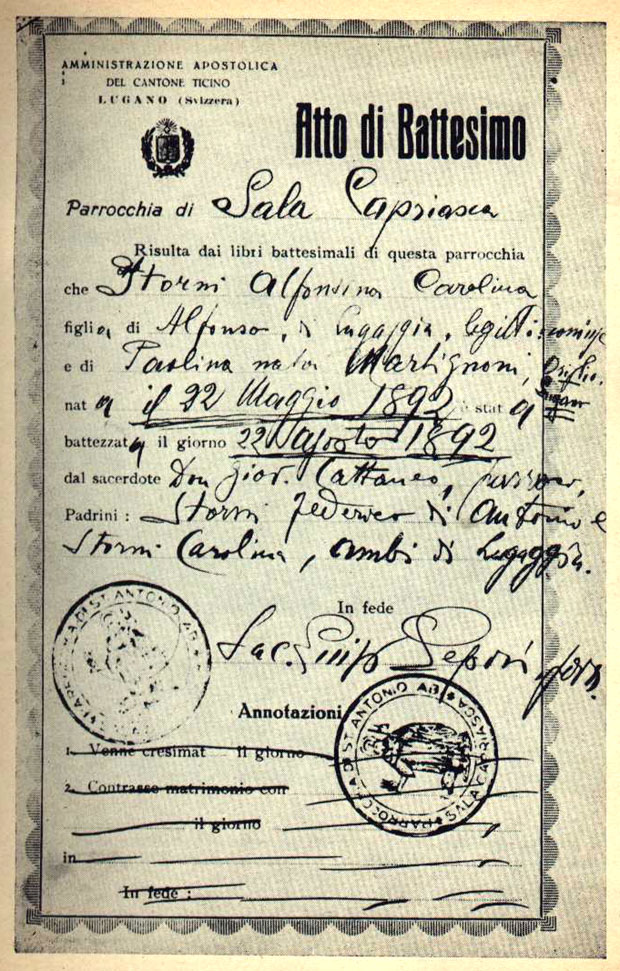 AMMINISTRAZIONE APOSTOLICA
DEL CANTONE TICINO
LUGANO (Svizzera)
Atto di Battesimo
Parrocchia di Sala Capriasca
Risulta dai libri battesimali di questa parrocchia
che Storni Alfonsina Carolina
figlia di Alfonso, di Lugaggia,
e di Paolina nata Martignoni, Origlio.
nata il 22 Maggio 1892 è stata
battezzata il giorno 22 agosto 1892
dal sacerdote Don Giov. Cattaneo, parroco,
Padrini : Storni Federico di Antonio e
Storni Carolina, ambi di Lugaggia.
In fede
Sac. Luigi Lepori,
PARROCCHIA DI ST. ANTONIO AB.
Annotazioni
PARROCCHIA DI ST. ANTONIO AB. SALA CAPRIASCA
1. Venne cresimat il giorno
2. Contrasse matrimonio con
il giorno
in
In fede :